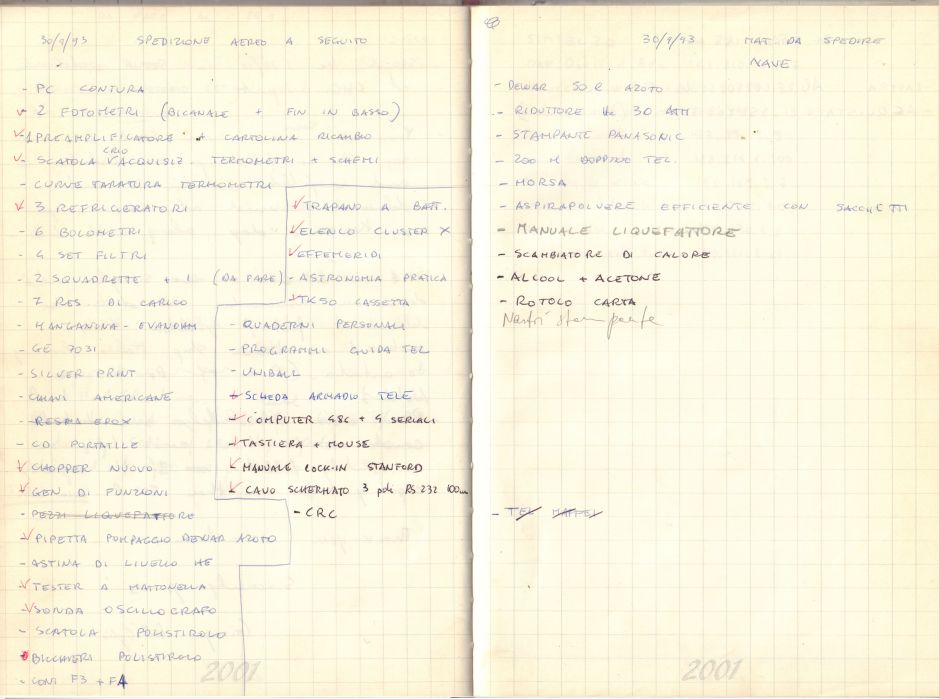 30/9/93 SPEDIZIONE AEREO A SEGUITO
- PC CONTURA
- 2 FOTOMETRI (BICANALE + FIN IN BASSO)
- 1 PREAMPLIFICATORE + CARTOLINA RICAMBIO
- SCATOLA CRIO ACQUISIZ. TERMOMETRI + SCHEMI
- CURVE TARATURA TERMOMETRI
- 3 REFRIGERATORI
- 6 BOLOMETRI
- 4 SET FILTRI
- 2 SQUADRETTE + 1 (DA PARE)
- 7 RES. DI CARICO
- MANGANONA - EVANOHM
- GE 7031
- SILVER PRINT
- CHIAVI AMERICANE
- RESINA EPOX
- CD PORTATILE
- CHOPPER NUOVO
- GEN DI FUNZIONI
- PEZZI LIQUEFATTORE
- PIPETTA POMPAGGIO DEWAR AZOTO
- ASTINA DI LIVELLO HE
- TESTER A MATTONELLA
- SONDA OSCILLOGRAFO
- SCATOLA POLISTIROLO
- BICCHIERI POLISTIROLO
- CONI F3 + F4
TRAPANO A BATT.
ELENCO CLUSTER X
EFFEMERIDI
- ASTRONOMIA PRATICA
- TK50 CASSETTA
- QUADERNI PERSONALI
- PROGRAMMI GUIDA TEL
- UNIBALL
- SCHEDA ARMADIO TELE
- COMPUTER 486 + 4 SERIALI
- TASTIERA + MOUSE
MANUALE LOCK-IN STANFORD
CAVO SCHERMATO 3 poli RS 232 100m
- CRC
2001
30/9/93 MAT. DA SPEDIRE
NAVE
- DEWAR 50 l AZOTO
- RIDUTTORE He 30 ATM
- STAMPANTE PANASONIC
- 200 M DOPPINO TEL.
- MORSA
- ASPIRAPOLVERE EFFICIENTE CON SACCHETTI
- MANUALE LIQUEFATTORE
- SCAMBIATORE DI CALORE
- ALCOOL + ACETONE
- ROTOLO CARTA
Nastri stampante
- TEL MAFFEI
2001